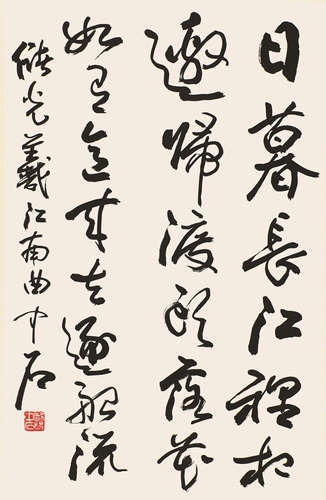 日暮長江裡相
邀歸渡頭落花
如有意來去逐船流
儲光羲江南曲 中石